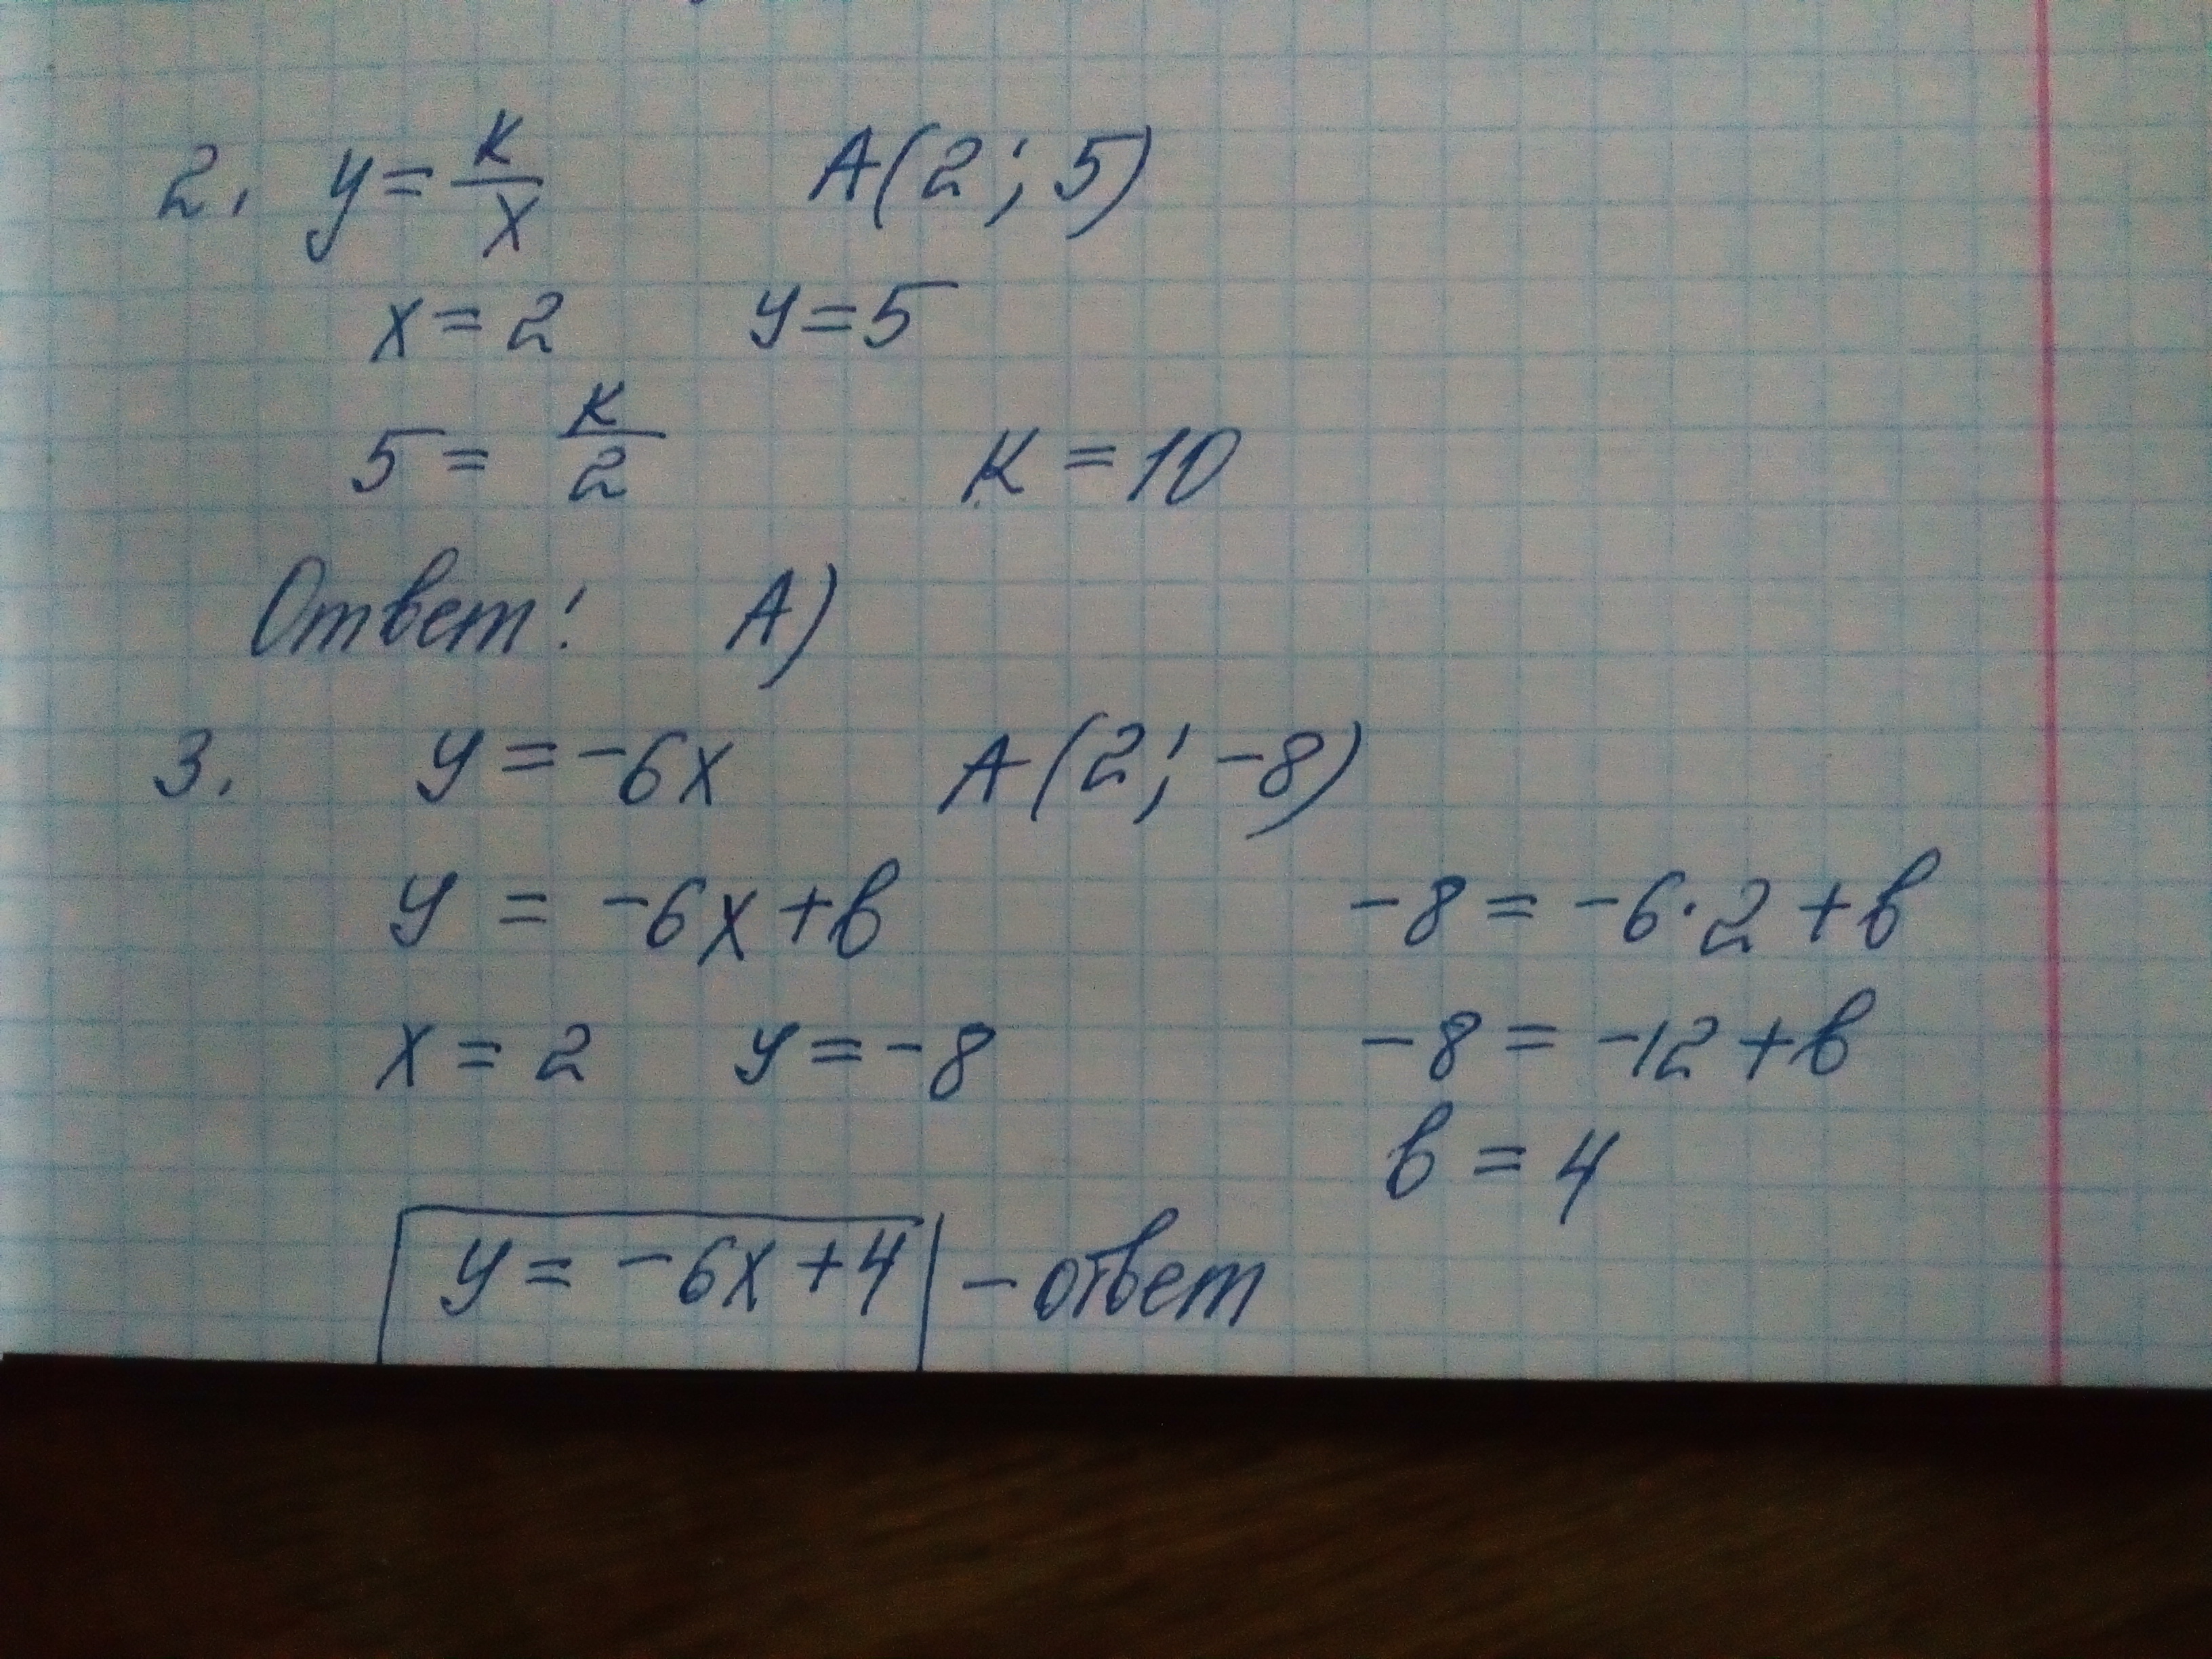 2. y = k/x A(2; 5)
x = 2 y = 5
5 = k/2 K = 10
Ответ: А)
3. y = -6x A(2; -8)
y = -6x + в -8 = -6·2 + в
x = 2 y = -8 -8 = -12 + в
в = 4
y = -6x + 4 - ответ